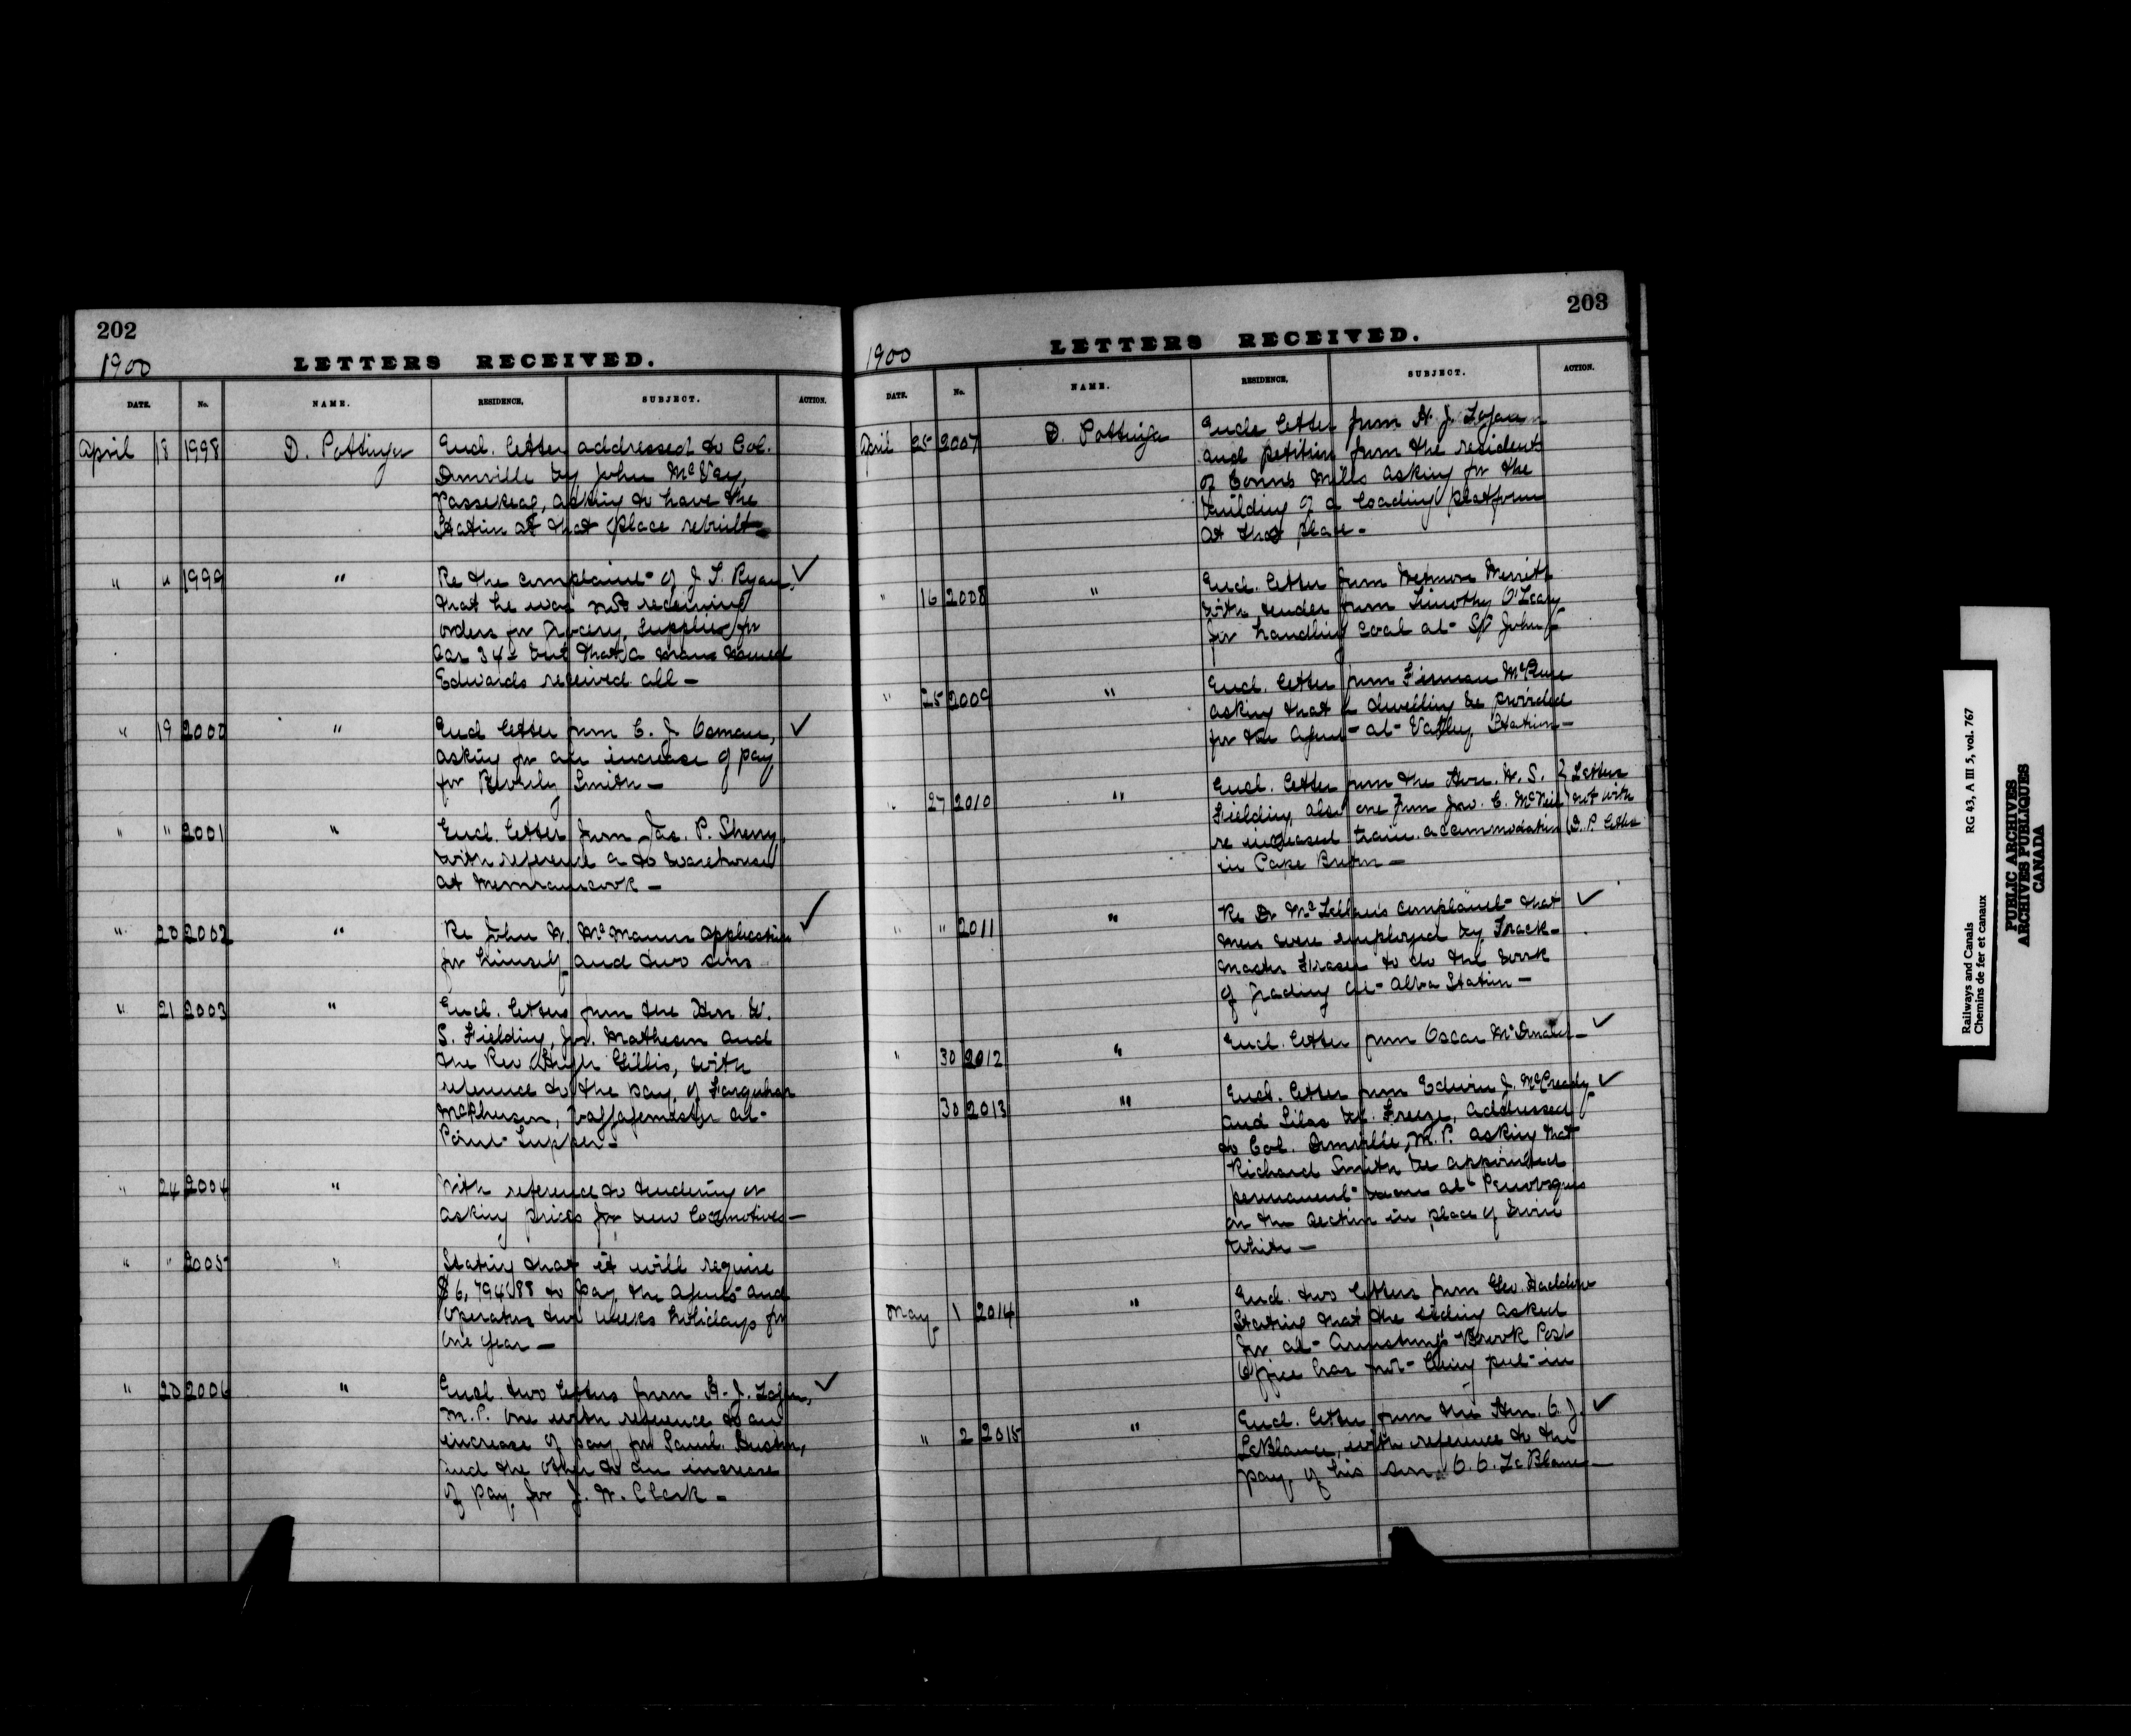 202
1900
LETTERS RECEIVED.
DATE. No. NAME. RESIDENCE. SUBJECT. ACTION.
April 18 1998 D. Pottinger Encl. letter addressed to Col.
Domville by John McVey,
Passekeag, asking to have the
Station at that place rebuilt —
" " 1999 " Re the complaint of J. T. Ryan, ✓
that he was not receiving
orders for Grocery Supplies for
Car 34 but that a man named
Edwards received all —
" 19 2000 " Encl letter from C. J. Osman, ✓
asking for an increase of pay
for Beverly Smith —
" " 2001 " Encl. letter from Jas. P. Sherry,
with reference a to warehouse
at Memramcook —
" 20 2002 " Re John W. McManus application ✓
for himself and two sons
" 21 2003 " Encl. letters from the Hon. W.
S. Fielding, Jos. Matheson and
the Rev. Hugh Gillis, with
reference to the pay of Farquhar
McPherson, baggagemaster at
Point Tupper —
" 24 2004 " With reference to tendering or
asking prices for new locomotives —
" " 2005 " Stating that it will require
$6,794.88 to pay the Agents and
Operators two weeks holidays for
one year —
" 20 2006 " Encl. two letters from H. J. Logan, ✓
M.P. one with reference to an
increase of pay for Saml.
and the other to an increase
of pay for J. W. Clark —
203
1900
LETTERS RECEIVED.
DATE. No. NAME. RESIDENCE. SUBJECT. ACTION.
April 25 2007 D. Pottinger Encl. letter from H. J. Logan
and petition from the residents
of Conns Mills asking for the
building of a loading platform
at that place —
" 16 2008 " Encl. letter from Wetmore Merritt
with tender from Timothy O'Leary
for handling coal at St John —
" 25 2009 " Encl. letter from
asking that a dwelling be provided
for the Agent at Valley Station —
" 27 2010 " Encl. letter from the Hon. W. S. } Letter
Fielding, also one from Jno. C. McNeil } not with
re increased train accommodation } D. P. letter
in Cape Breton —
" " 2011 " Re Dr McLellan's complaint that ✓
men were employed by Track-
master Fraser to do the work
of grading at Alba Station —
" 30 2012 " Encl. letter from Oscar McDonald — ✓
30 2013 " Encl. letter from Edwin J. McCready ✓
and Silas W. Freeze, addressed
to Col. Domville, M.P. asking that
Richard Smith be appointed
permanent man at Penobsquis
on the section in place of
White —
May 1 2014 " Encl. two letters from Geo. Haddow
Stating that the siding asked
for at Armstrong's Brook Post
Office has not being put in
" 2 2015 " Encl. letter from the Hon. O. J. ✓
LeBlanc, with reference to the
pay of his son, O. O. LeBlanc —
Railways and Canals RG 43, A III 5, vol. 767
Chemins de fer et canaux
PUBLIC ARCHIVES
ARCHIVES PUBLIQUES
CANADA